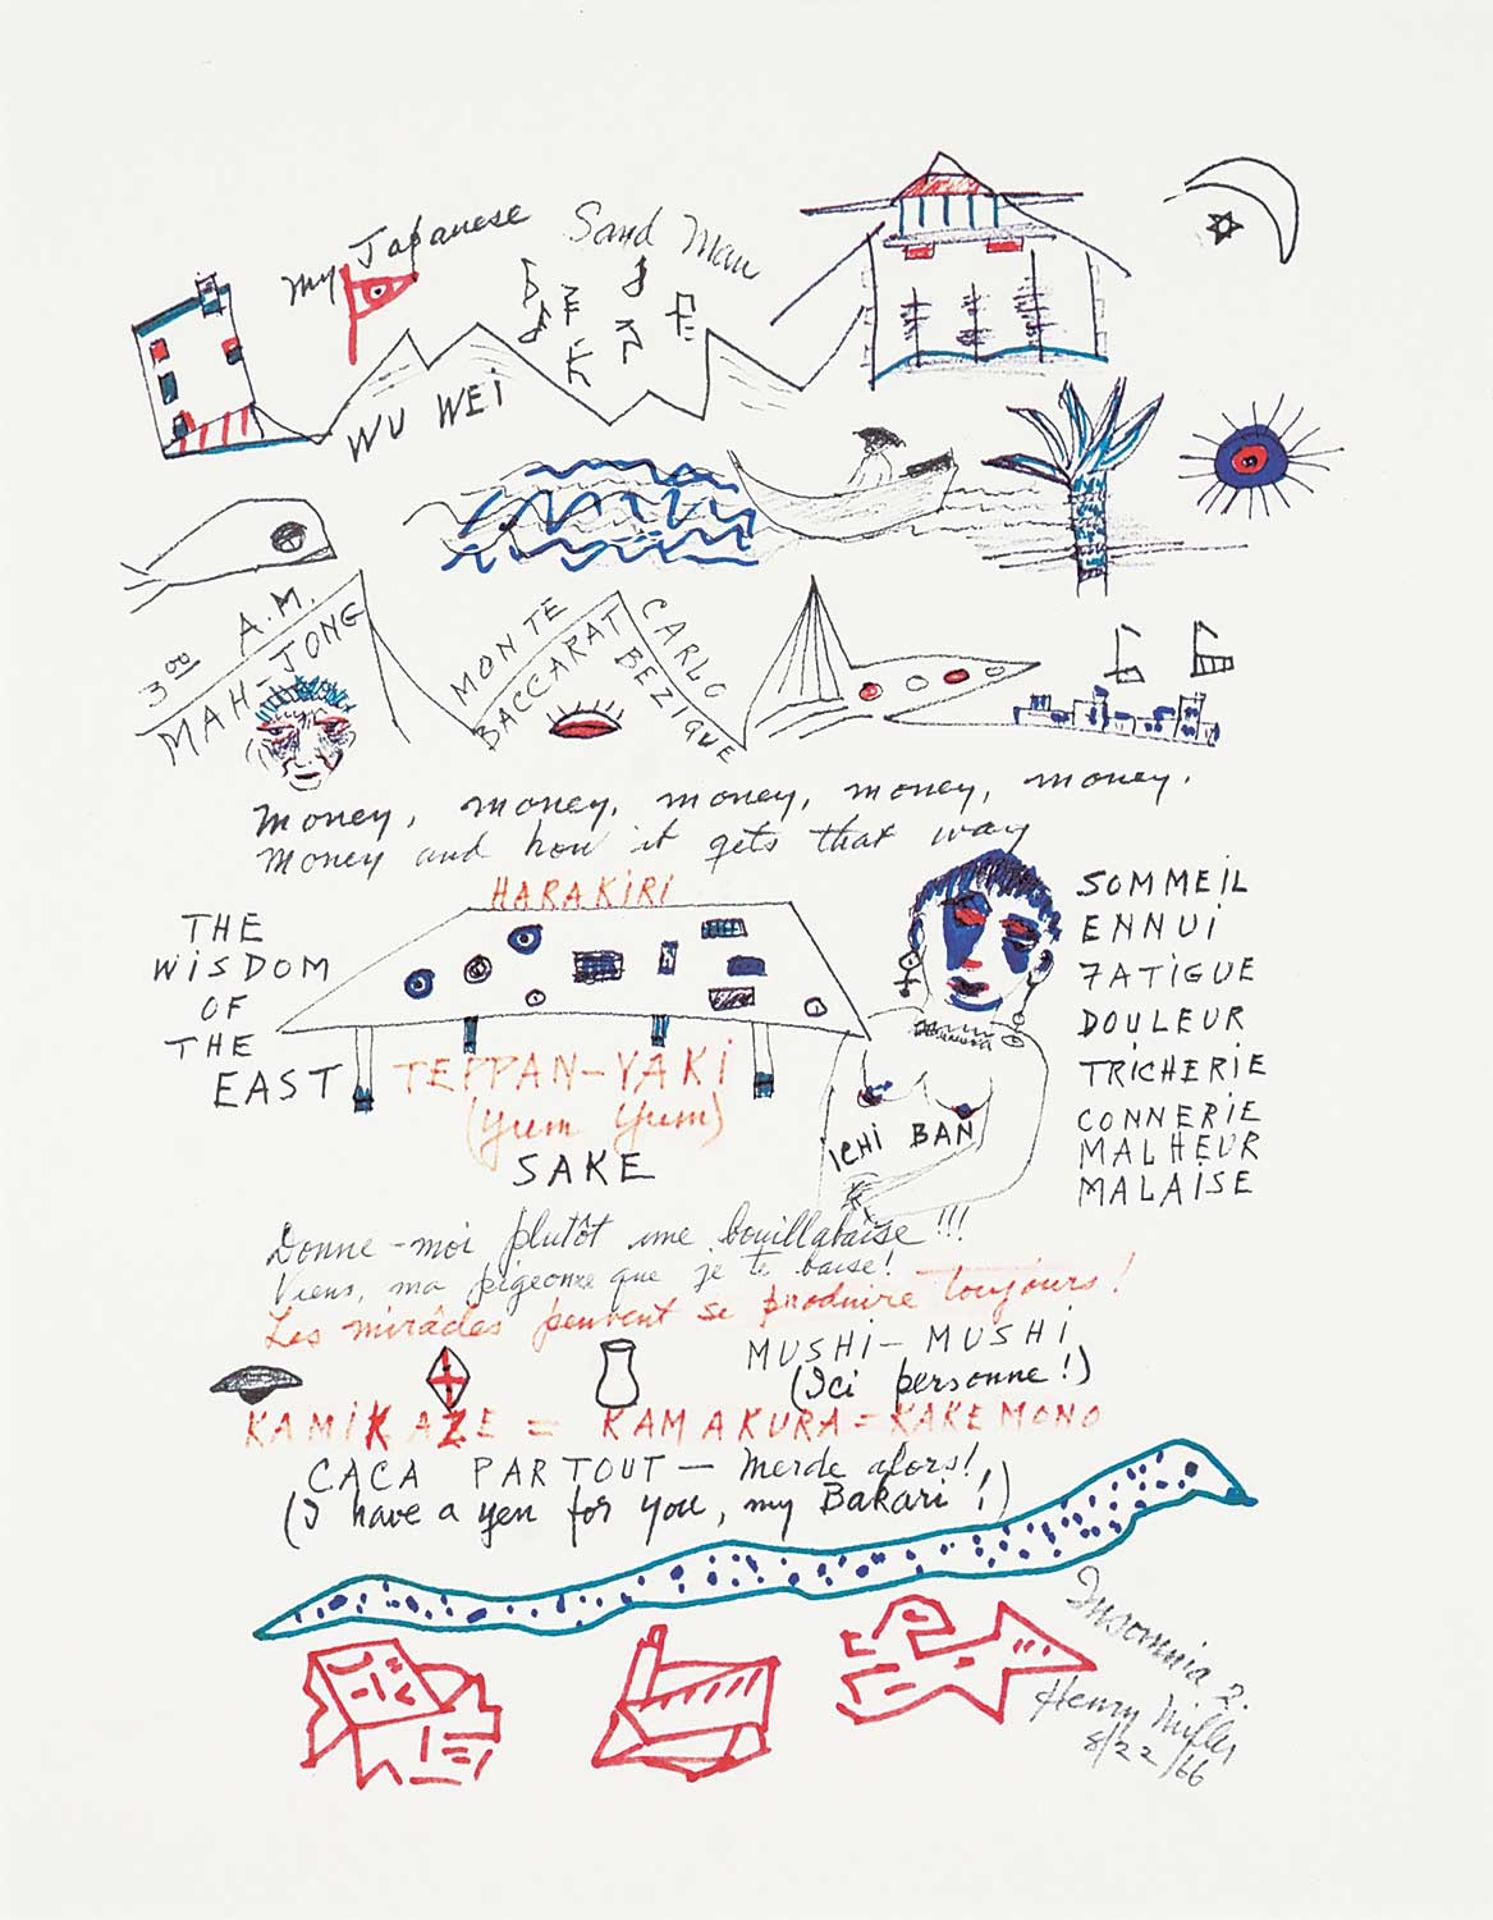 my Japanese Sand Man
WU WEI
3 00 A.M.
MAH-JONG
MONTE
CARLO
BACCARAT
BEZIQUE
money, money, money, money, money.
money and how it gets that way
HARAKIRI
THE
WISDOM
OF
THE
EAST
TEPPAN-YAKI
(yum yum)
SAKE
ICHI BAN
SOMMEIL
ENNUI
FATIGUE
DOULEUR
TRICHERIE
CONNERIE
MALHEUR
MALAISE
Donne-moi plutôt une bouillabaise!!!
Viens, ma pigeonne que je te baise!
Les mirâcles peuvent se produire toujours!
MUSHI-MUSHI
(Ici personne!)
KAMIKAZE = KAMAKURA = KAKEMONO
CACA PARTOUT — Merde alors!
(I have a yen for you, my Bakari!)
Insomnia 2.
Henry Miller
8/22/66